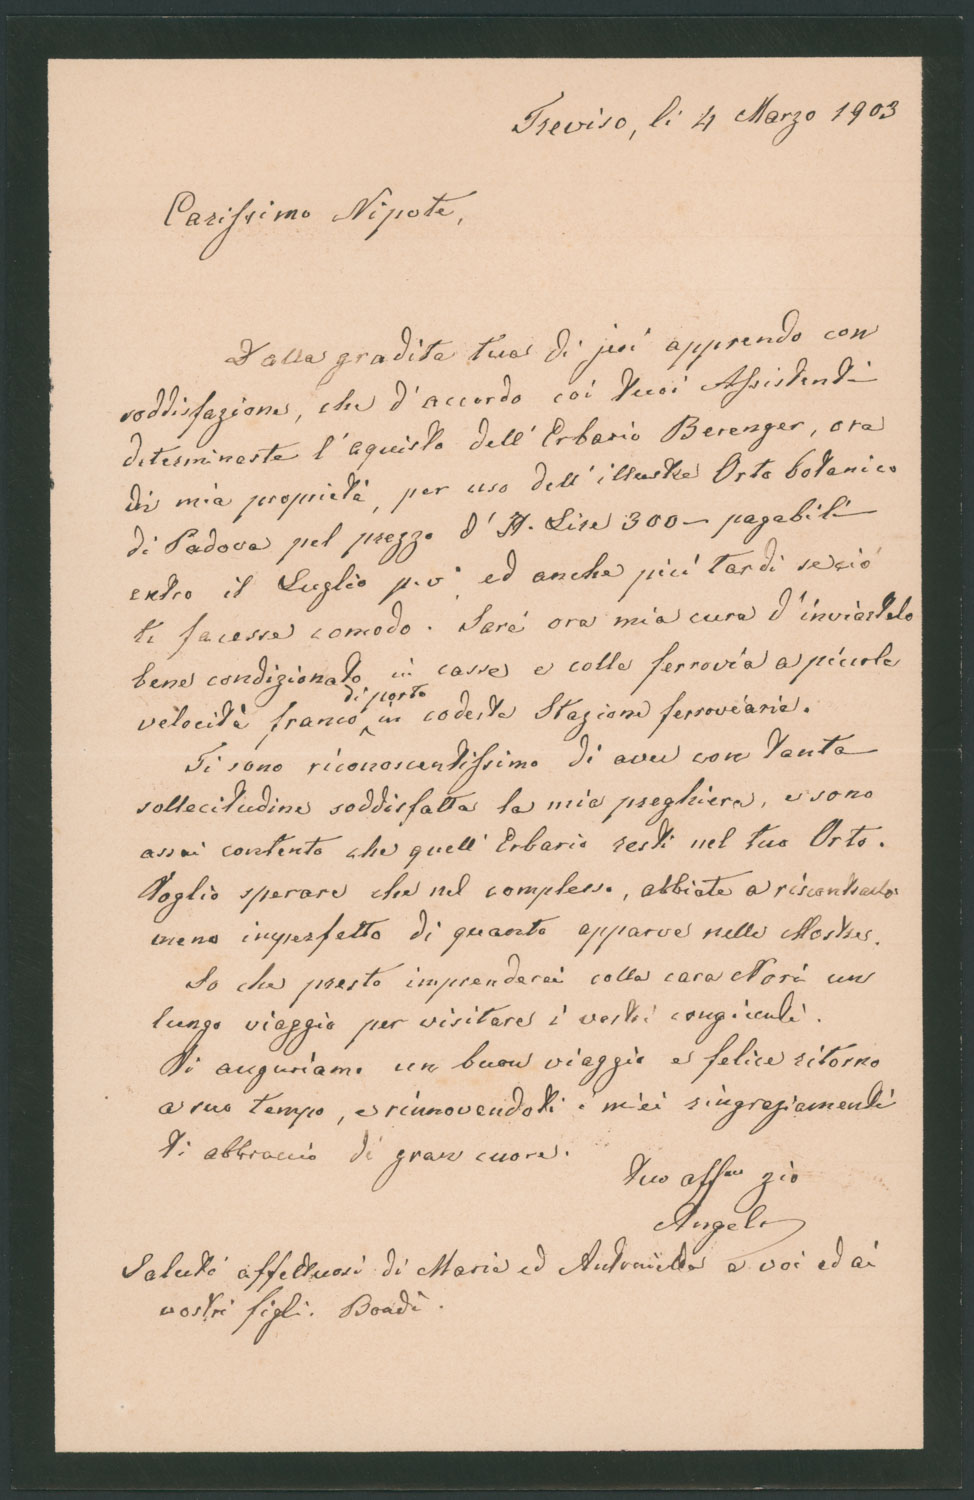 Treviso, li 4 Marzo 1903
Carissimo Nipote,
Dalla gradita tua di jeri apprendo con
soddisfazione, che d'accordo coi tuoi Assistenti
determinaste l'aquisto dell'Erbario Berenger, ora
di mia proprietà, per uso dell'illustre Orto botanico
di Padova pel prezzo d'It. Lire 300 — pagabili
entro il Luglio p.º v.º ed anche più tardi se ciò
ti facesse comodo. Sarà ora mia cura d'inviartelo
bene condizionato in casse e colla ferrovia a piccola
velocità franco di porto in codesta Stazione ferroviaria.
Ti sono riconoscentissimo di aver con tanta
sollecitudine soddisfatta la mia preghiera, e sono
assai contento che quell'Erbario resti nel tuo Orto.
Voglio sperare che nel complesso, abbiate a riscontrarlo
meno imperfetto di quanto apparve nelle Mostre.
So che presto imprenderai colla cara Nori un
lungo viaggio per visitare i vostri congiunti.
Vi auguriamo un buon viaggio e felice ritorno
a suo tempo, e rinnovendoti i miei ringraziamenti
ti abbraccio di gran cuore.
Tuo affmo zio
Angelo
Saluti affettuosi di Maria ed Antonietta a voi ed ai
vostri figli.